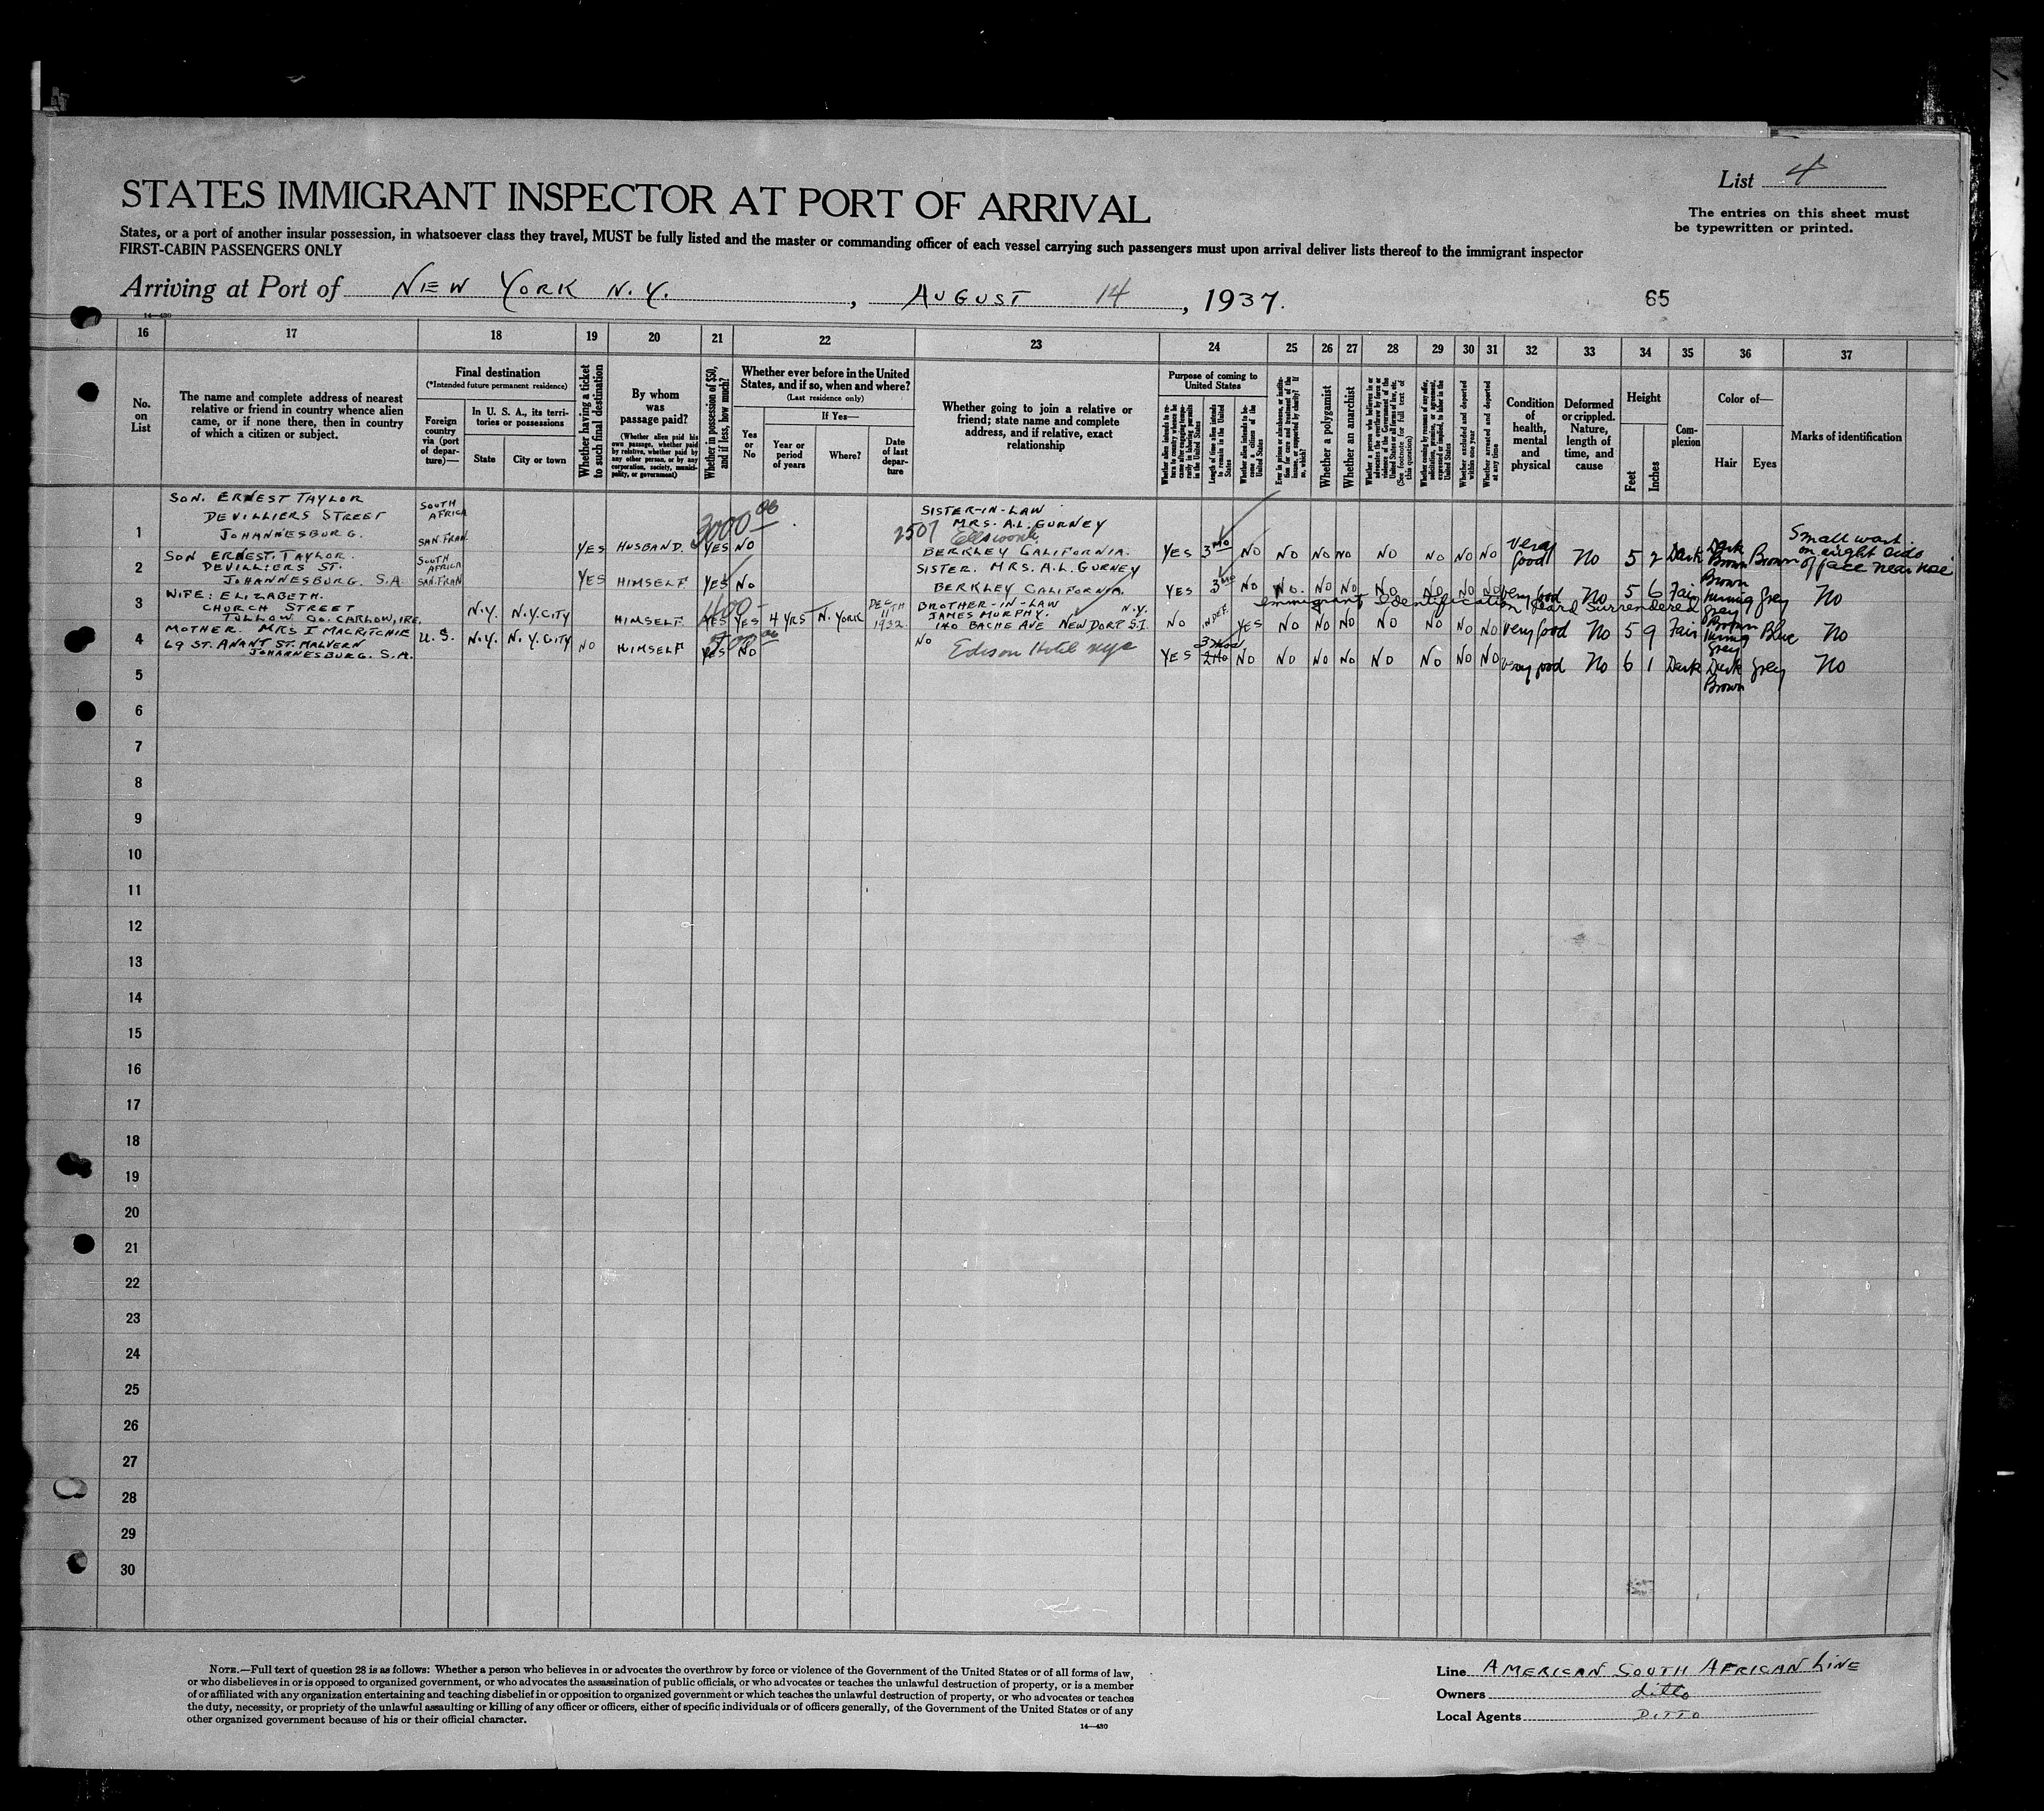 List 4
The entries on this sheet must
be typewritten or printed.
STATES IMMIGRANT INSPECTOR AT PORT OF ARRIVAL
States, or a port of another insular possession, in whatsoever class they travel, MUST be fully listed and the master or commanding officer of each vessel carrying such passengers must upon arrival deliver lists thereof to the immigrant inspector
FIRST-CABIN PASSENGERS ONLY
Arriving at Port of NEW YORK N.Y., AUGUST 14, 1937.
65
14—430
16 17 18 19 20 21 22 23 24 25 26 27 28 29 30 31 32 33 34 35 36 37
No.
on
List
The name and complete address of nearest
relative or friend in country whence alien
came, or if none there, then in country
of which a citizen or subject.
Final destination
(*Intended future permanent residence)
Foreign
country
via (port
of depar-
ture)—
In U. S. A., its terri-
tories or possessions
State
City or town
Whether having a ticket
to such final destination
By whom
was
passage paid?
(Whether alien paid his
own passage, whether paid
by relative, whether paid by
any other person, or by any
corporation, society, munici-
pality, or government)
Whether in possession of $50,
and if less, how much?
Whether ever before in the United
States, and if so, when and where?
(Last residence only)
Yes
or
No
If Yes—
Year or
period
of years
Where?
Date
of last
depar-
ture
Whether going to join a relative or
friend; state name and complete
address, and if relative, exact
relationship
Purpose of coming to
United States
Whether alien intends to re-
turn to country whence he
came after engaging tempo-
rarily in laboring pursuits
in the United States
Length of time alien intends
to remain in the United
States
Whether alien intends to be-
come a citizen of the
United States
Ever in prison or almshouse, or institu-
tion for care and treatment of the
insane, or supported by charity? If
so, which?
Whether a polygamist
Whether an anarchist
Whether a person who believes in or
advocates the overthrow by force or
violence of the Government of the
United States or all forms of law, etc.
(See footnote for full text of
this question)
Whether coming by reason of any offer,
solicitation, promise, or agreement,
expressed or implied, to labor in the
United States
Whether excluded and deported
within one year
Whether arrested and deported
at any time
Condition
of
health,
mental
and
physical
Deformed
or crippled.
Nature,
length of
time, and
cause
Height
Feet
Inches
Com-
plexion
Color of—
Hair
Eyes
Marks of identification
1
SON. ERNEST TAYLOR
DEVILLIERS STREET
JOHANNESBURG.
SOUTH
AFRICA
SAN.FRAN.
YES HUSBAND. 3000.00 YES NO
SISTER-IN-LAW
MRS. A.L. GURNEY
2507
BERKLEY CALIFORNIA.
YES 3 MO NO NO NO NO NO NO NO NO Very Good No 5 2 Dark Dark Brown Brown
Small wart
on right side
of face near nose
2
SON ERNEST. TAYLOR.
DEVILLIERS ST.
JOHANNESBURG. S.A.
SOUTH
AFRICA
SAN.FRAN
YES HIMSELF YES NO
SISTER. MRS. A.L. GURNEY
BERKLEY CALIFORNIA.
YES 3 MO NO NO. NO NO NO NO NO NO Very Good No 5 6 Fair Brown turning gray Grey No
3
WIFE: ELIZABETH.
CHURCH STREET
TULLOW. CO. CARLOW, IRE.
N.Y. N.Y.CITY HIMSELF 400- YES YES 4 YRS N. YORK DEC 11TH 1932
BROTHER-IN-LAW
JAMES MURPHY. N.Y.
140 BACHE AVE NEW DORP S.I.
Immigrant Identification Card Surrendered
NO INDEF. YES NO NO NO NO NO NO NO Very Good No 5 9 Fair Brown turning Grey Blue No
4
MOTHER. MRS I MACRITCHIE
69 ST. ANANT ST. MALVERN
JOHANNESBURG. S.A.
U.S. N.Y. N.Y.CITY NO HIMSELF 500.00 YES NO
NO Edison Hotel nyc
YES 3 mos 2 Mo NO NO NO NO NO NO NO NO Very good No 6 1 Dark Dark Brown Grey No
5
6
7
8
9
10
11
12
13
14
15
16
17
18
19
20
21
22
23
24
25
26
27
28
29
30
NOTE.—Full text of question 28 is as follows: Whether a person who believes in or advocates the overthrow by force or violence of the Government of the United States or of all forms of law,
or who disbelieves in or is opposed to organized government, or who advocates the assassination of public officials, or who advocates or teaches the unlawful destruction of property, or is a member
of or affiliated with any organization entertaining and teaching disbelief in or opposition to organized government or which teaches the unlawful destruction of property, or who advocates or teaches
the duty, necessity, or propriety of the unlawful assaulting or killing of any officer or officers, either of specific individuals or of officers generally, of the Government of the United States or of any
other organized government because of his or their official character.
14—430
Line AMERICAN SOUTH AFRICAN LINE
Owners ditto
Local Agents DITTO